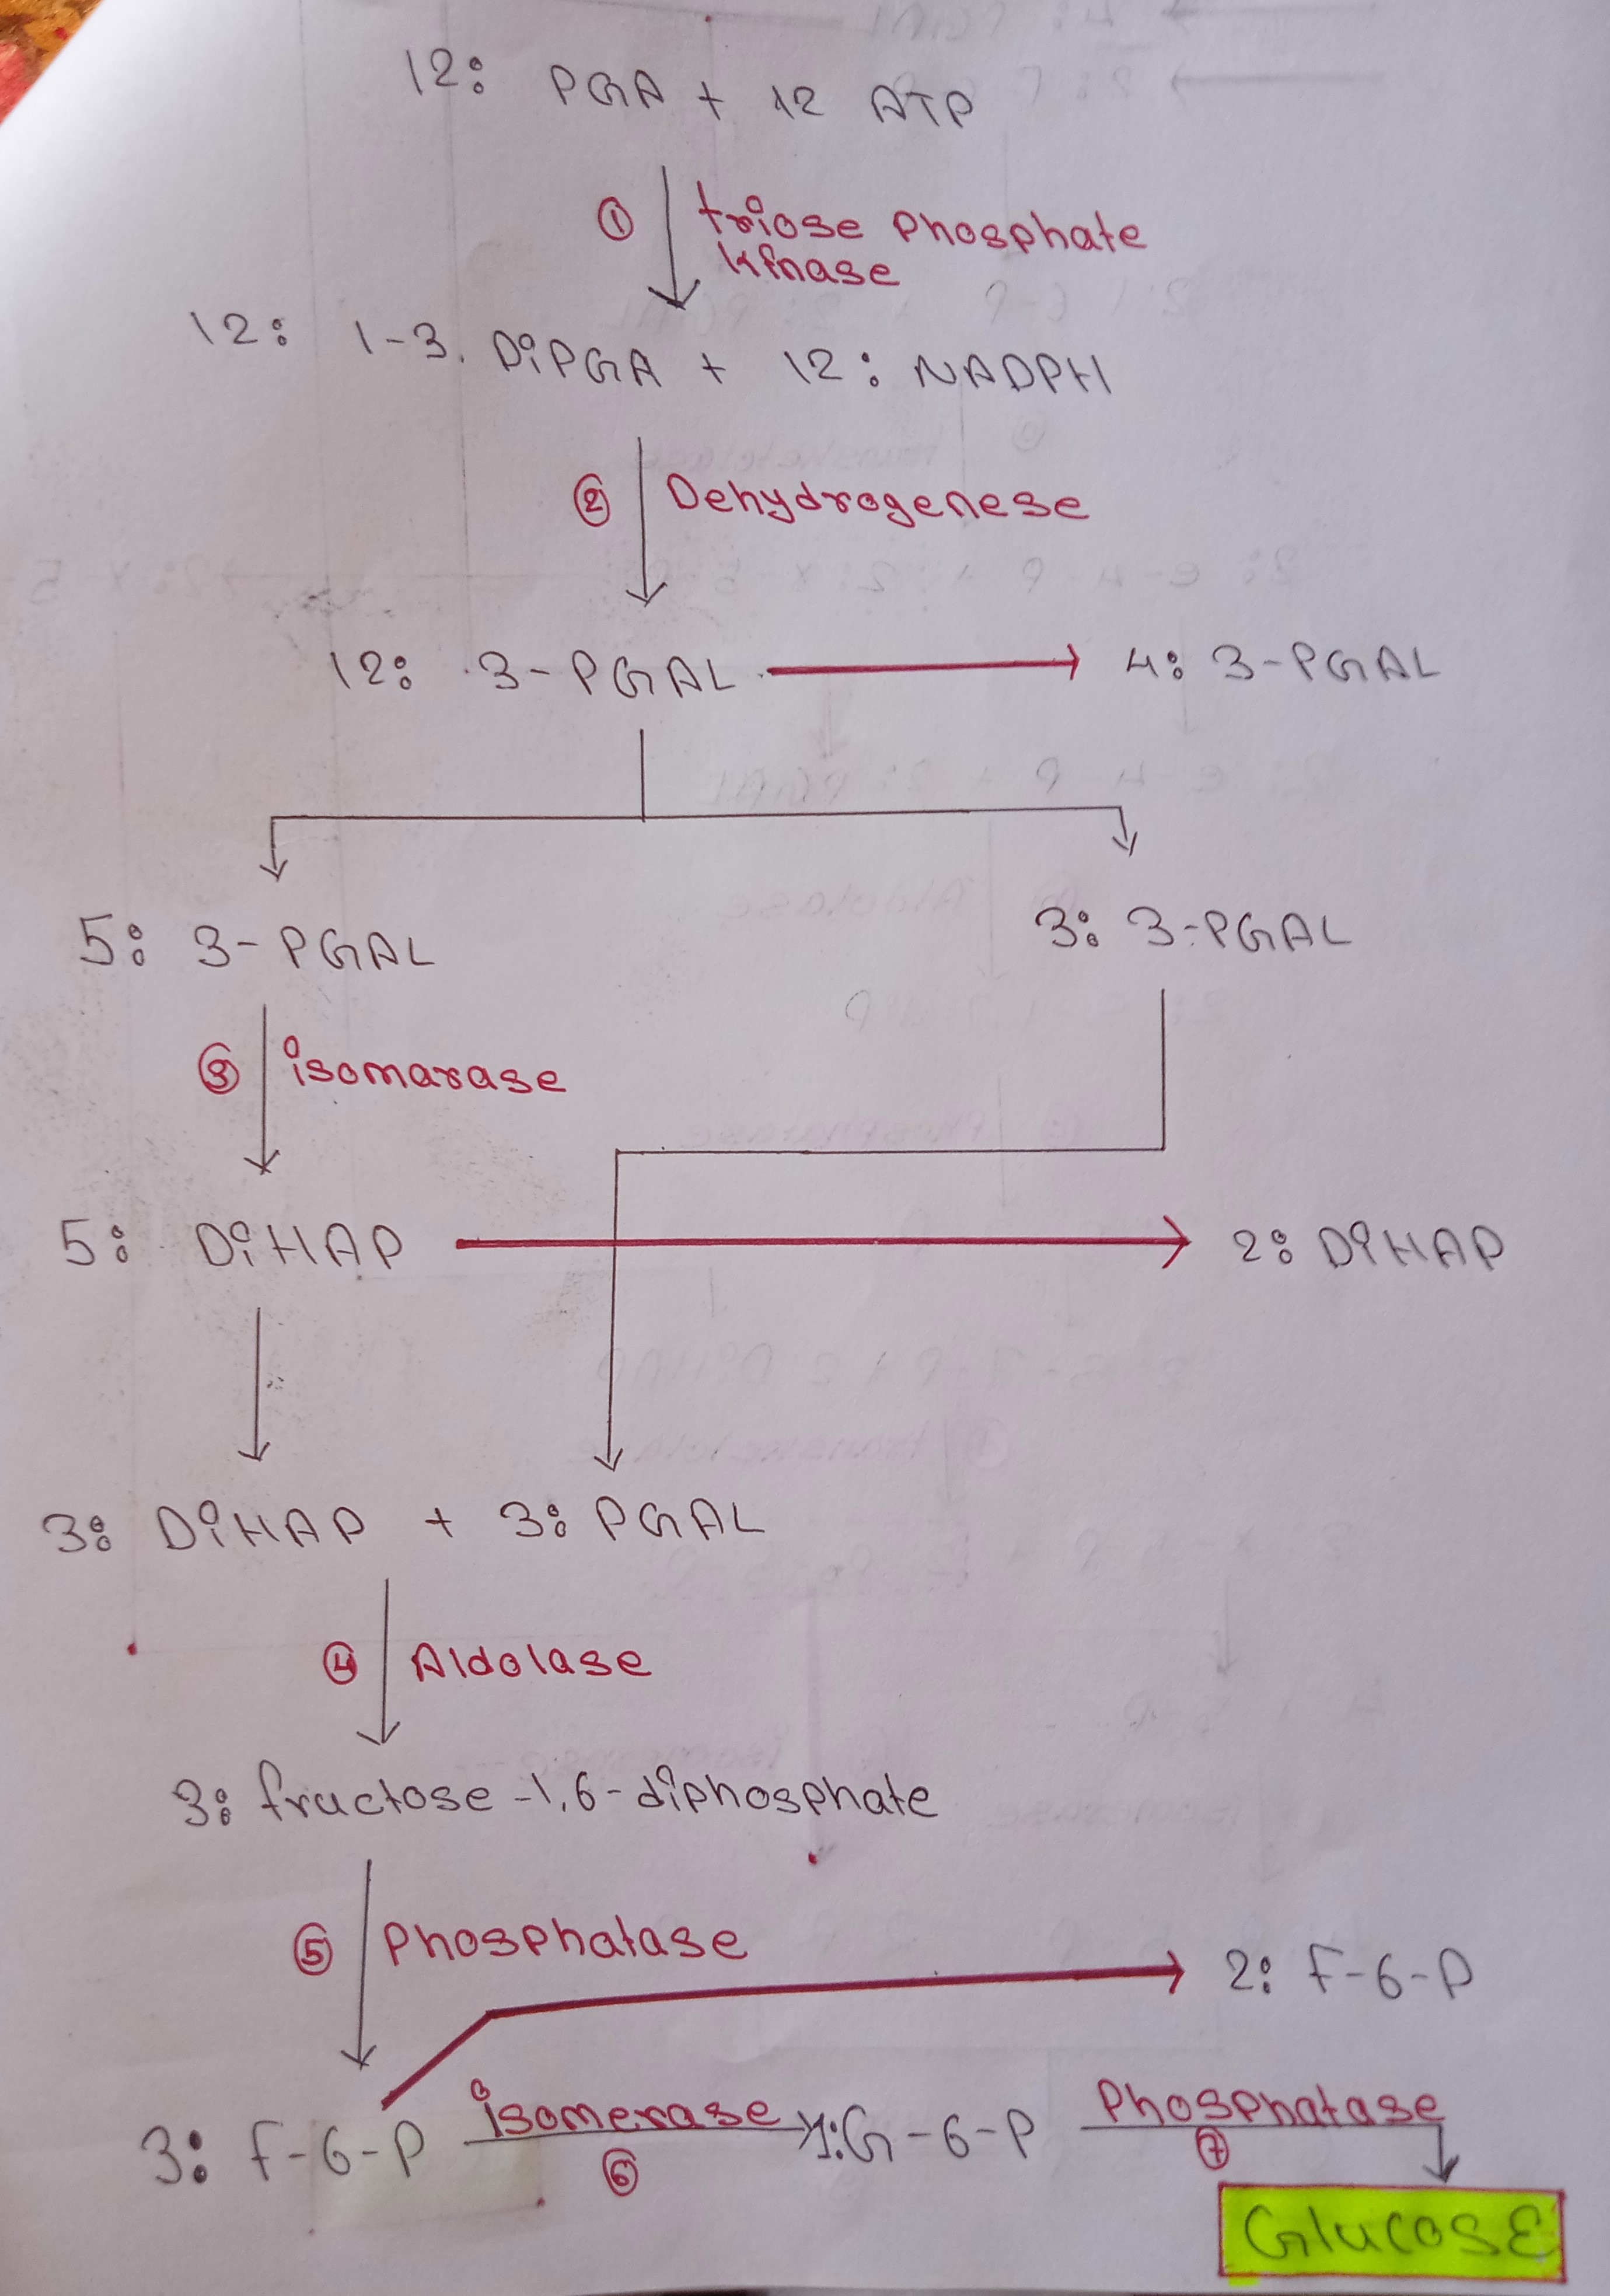 12: PGA + 12 ATP
① triose phosphate
kinase
12: 1-3. DiPGA + 12: NADPH
② Dehydrogenese
12: 3-PGAL → 4: 3-PGAL
5: 3-PGAL 3: 3-PGAL
③ isomarase
5: DiHAP → 2: DiHAP
3: DiHAP + 3: PGAL
④ Aldolase
3: fructose-1,6-diphosphate
⑤ Phosphatase
2: F-6-P
3: F-6-P isomerase 1:G-6-P Phosphatase
⑥ ⑦
GlucosE